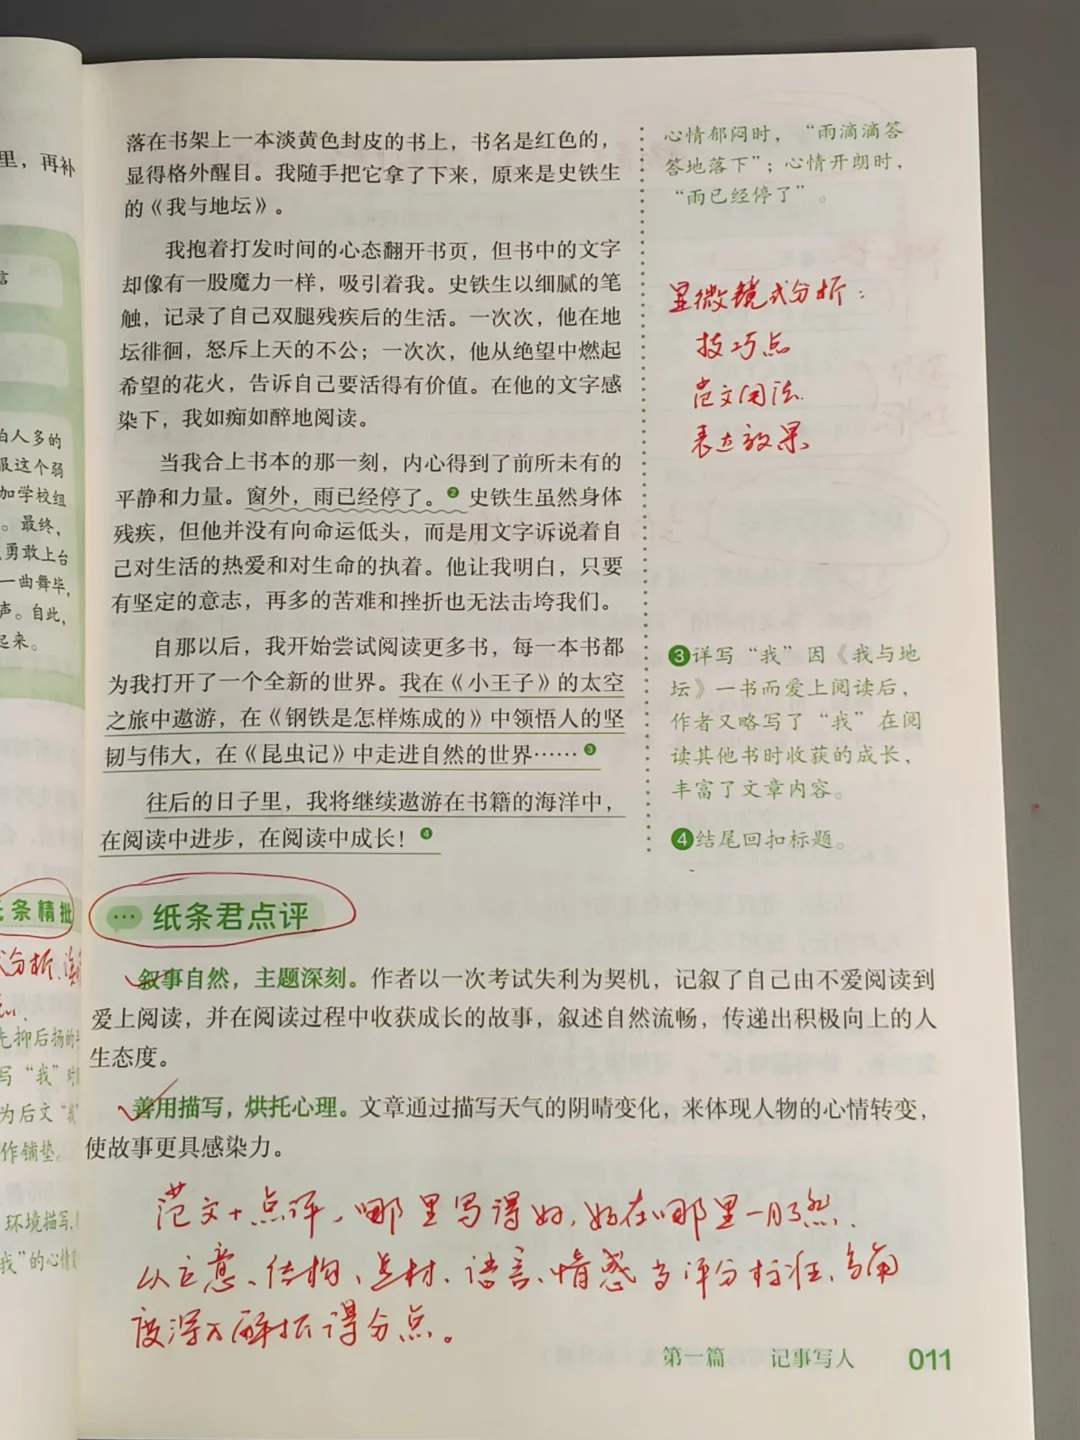 里，再补
言
白人多的
服这个弱
加学校组
。最终，
勇敢上台
一曲舞毕，
声。自此，
起来。
条精批
式分析
先抑后扬的
写“我”
为后文“我
作铺垫。
环境描写，
我”的心情
落在书架上一本淡黄色封皮的书上，书名是红色的，
显得格外醒目。我随手把它拿了下来，原来是史铁生
的《我与地坛》。
我抱着打发时间的心态翻开书页，但书中的文字
却像有一股魔力一样，吸引着我。史铁生以细腻的笔
触，记录了自己双腿残疾后的生活。一次次，他在地
坛徘徊，怒斥上天的不公；一次次，他从绝望中燃起
希望的花火，告诉自己要活得有价值。在他的文字感
染下，我如痴如醉地阅读。
当我合上书本的那一刻，内心得到了前所未有的
平静和力量。窗外，雨已经停了。❷史铁生虽然身体
残疾，但他并没有向命运低头，而是用文字诉说着自
己对生活的热爱和对生命的执着。他让我明白，只要
有坚定的意志，再多的苦难和挫折也无法击垮我们。
自那以后，我开始尝试阅读更多书，每一本书都
为我打开了一个全新的世界。我在《小王子》的太空
之旅中遨游，在《钢铁是怎样炼成的》中领悟人的坚
韧与伟大，在《昆虫记》中走进自然的世界……❸
往后的日子里，我将继续遨游在书籍的海洋中，
在阅读中进步，在阅读中成长！❹
心情郁闷时，“雨滴滴答
答地落下”；心情开朗时，
“雨已经停了”。
显微镜式分析：
技巧点
范文用法
表达效果
❸详写“我”因《我与地
坛》一书而爱上阅读后，
作者又略写了“我”在阅
读其他书时收获的成长，
丰富了文章内容。
❹结尾回扣标题。
纸条君点评
叙事自然，主题深刻。作者以一次考试失利为契机，记叙了自己由不爱阅读到
爱上阅读，并在阅读过程中收获成长的故事，叙述自然流畅，传递出积极向上的人
生态度。
善用描写，烘托心理。文章通过描写天气的阴晴变化，来体现人物的心情转变，
使故事更具感染力。
范文+点评，哪里写得好，好在哪里一目了然、
从立意、结构、选材、语言、情感为评分标准、多角
度深入解析得分点。
第一篇 记事写人 011